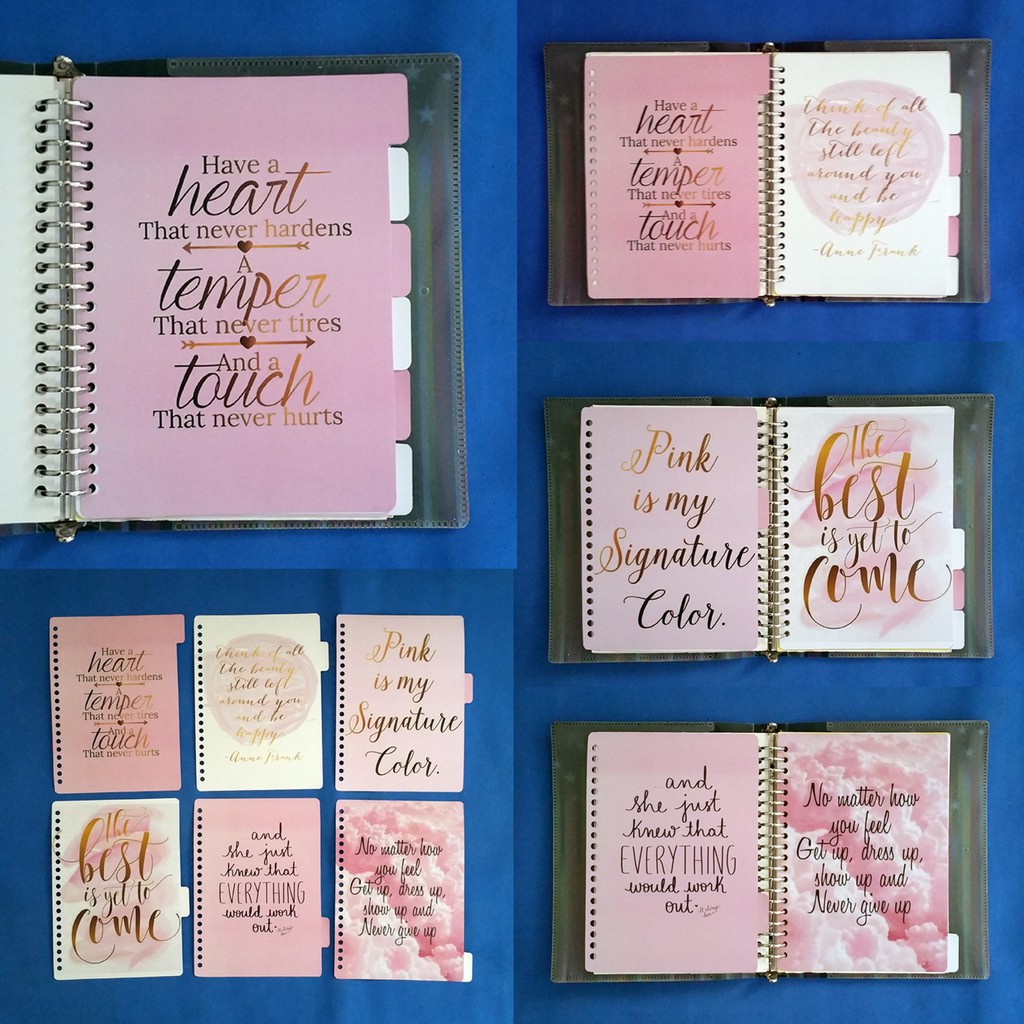 Have a
heart
That never hardens
A
temper
That never tires
And a
touch
That never hurts
Have a
heart
That never hardens
A
temper
That never tires
And a
touch
That never hurts
Think of all
the beauty
still left
around you
and be
happy
-Anne Frank
Pink
is my
Signature
Color.
The
BEST
is yet to
Come
Have a
heart
That never hardens
A
temper
That never tires
And a
touch
That never hurts
Think of all
the beauty
still left
around you
and be
happy
-Anne Frank
Pink
is my
Signature
Color.
The
BEST
is yet to
Come
and
she just
knew that
EVERYTHING
would work
out.
No matter how
you feel
Get up, dress up,
show up and
Never give up
and
she just
knew that
EVERYTHING
would work
out.
No matter how
you feel
Get up, dress up,
show up and
Never give up